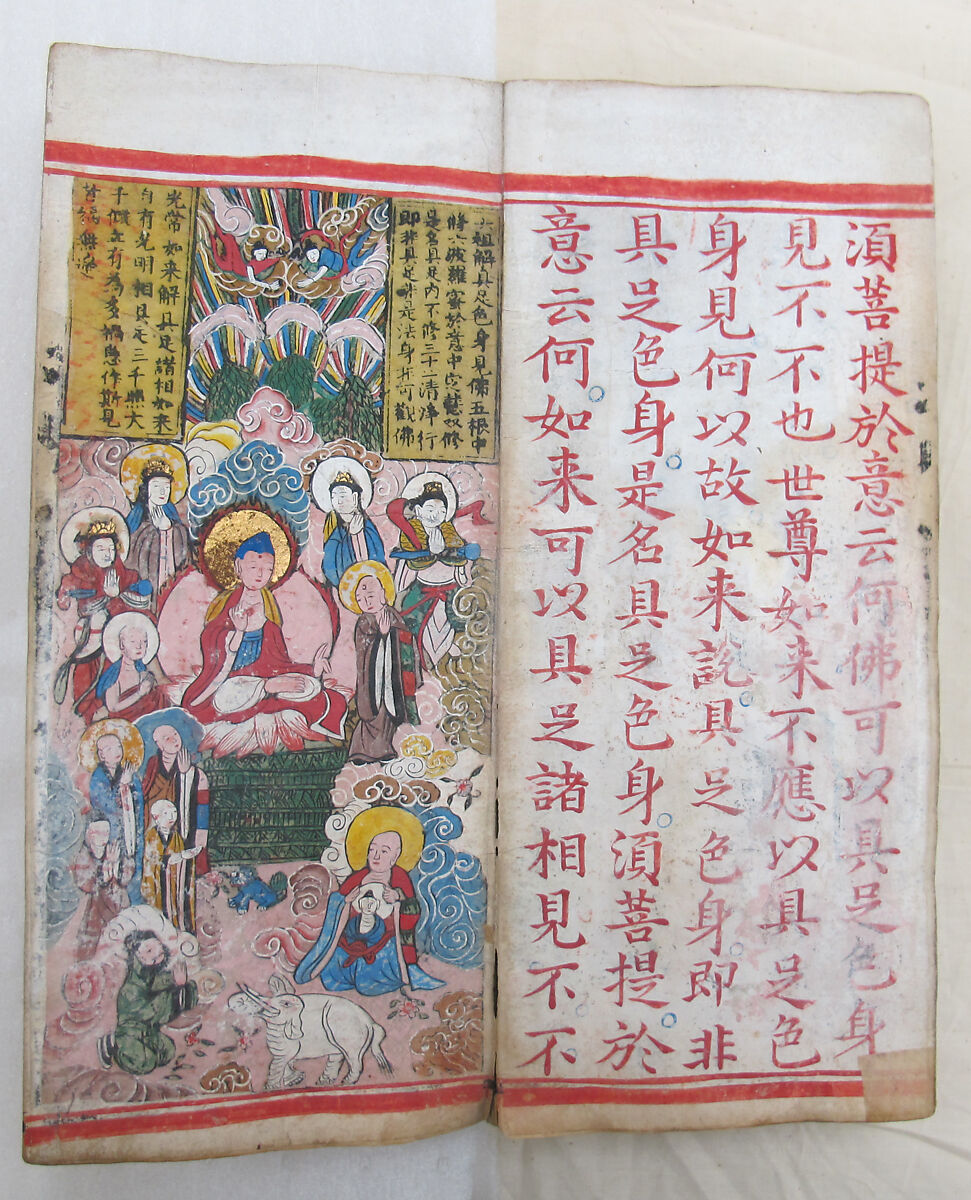 湏菩提於意云何佛可以具足色身
見不不也世尊如来不應以具足色
身見何以故如来說具足色身即非
具足色身是名具足色身湏菩提於
意云何如来可以具足諸相見不不
六祖解具足色身見佛五根中
修六波羅蜜於意中定慧双修
是名具足内不修三十二清淨行
即非具足非是法身并可觀佛
光常如来解具足諸相如来
自有光明相具足三千照大
千假立有為多作斯見
無